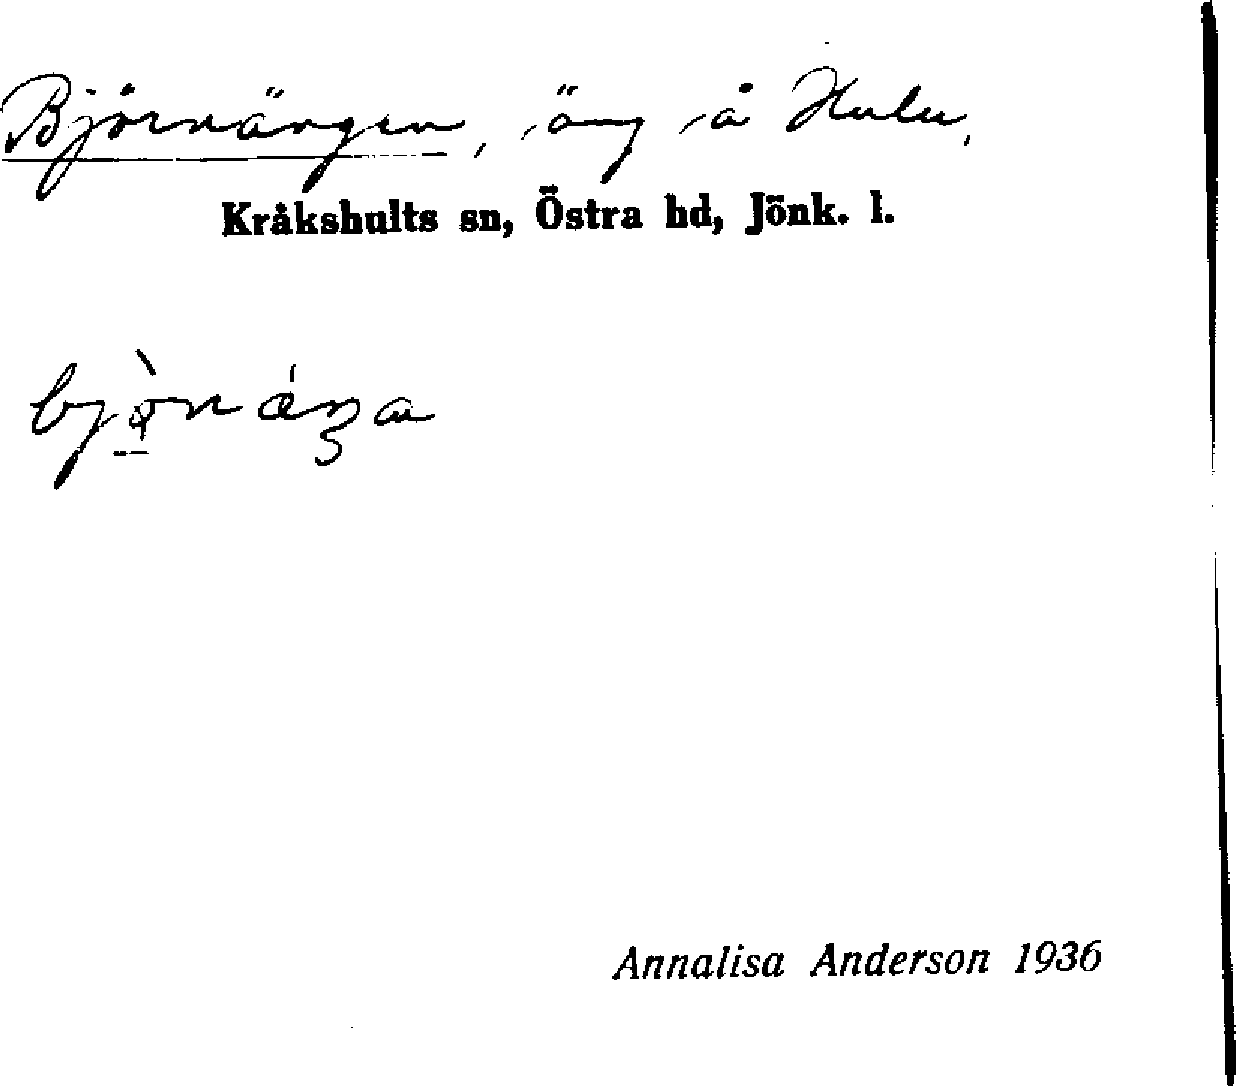 Björnängen, äng å Hulu,
Kråkshults sn, Östra hd, Jönk. l.
Annalisa Anderson 1936